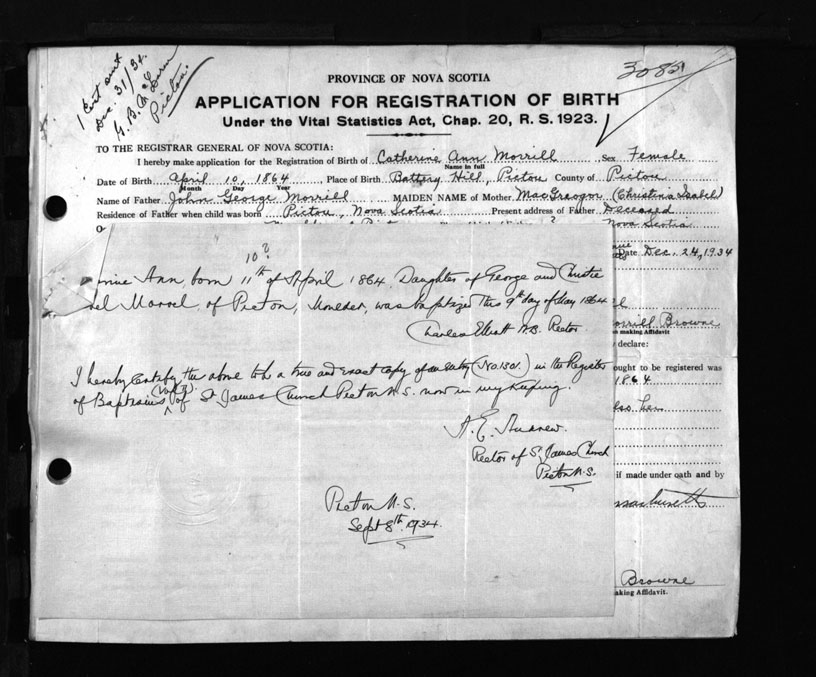 1 Cert sent
Dec. 31/34.
Pictou.
3085
PROVINCE OF NOVA SCOTIA
APPLICATION FOR REGISTRATION OF BIRTH
Under the Vital Statistics Act, Chap. 20, R. S. 1923.
TO THE REGISTRAR GENERAL OF NOVA SCOTIA:
I hereby make application for the Registration of Birth of Catherine Ann Morrill Sex Female
Name in full
Date of Birth April 10, 1864, Place of Birth Battery Hill, Pictou County of Pictou
Month Day Year
Name of Father John George Morrill MAIDEN NAME of Mother MacGreagor (Christina Isabel)
Residence of Father when child was born Pictou, Nova Scotia Present address of Father Deceased
Nova Scotia
Date Dec. 24, 1934
10?
Ann born 11th of April 1864. Daughter of George and Christie
Morrel, of Pictou, was baptized this 9th day of May 1864
Charles Elliott Rector
Morrill Browne
making Affidavit
declare:
I hereby certify the above to be a true and exact copy of an entry (No. 130.) in the Register
of Baptisms of St James Church Pictou N.S. now in my keeping.
ought to be registered was
1864
A. E. Andrew.
Rector of St James Church
Pictou N.S.
if made under oath and by
Massachusetts
Pictou N.S.
Sept 8th 1934.
Browne
making Affidavit.